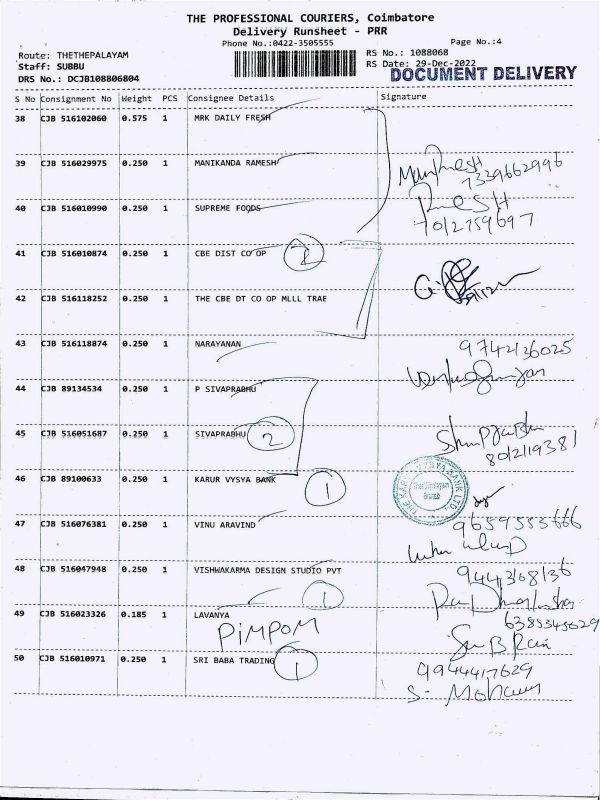 THE PROFESSIONAL COURIERS, Coimbatore
Delivery Runsheet - PRR
Phone No.:0422-3505555
Page No.:4
Route: THETHEPALAYAM
RS No.: 1088068
Staff: SUBBU
RS Date: 29-Dec-2022
DRS No.: DCJB108806804
DOCUMENT DELIVERY
S No Consignment No Weight PCS Consignee Details Signature
38 CJB 516102060 0.575 1 MRK DAILY FRESH
39 CJB 516029975 0.250 1 MANIKANDA RAMESH
7339662996
40 CJB 516010990 0.250 1 SUPREME FOODS
7012759697
41 CJB 516010874 0.250 1 CBE DIST CO OP 2
42 CJB 516118252 0.250 1 THE CBE DT CO OP MLLL TRAE
43 CJB 516118874 0.250 1 NARAYANAN
9742136025
44 CJB 89134534 0.250 1 P SIVAPRABHU
45 CJB 516051687 0.250 1 SIVAPRABHU 2
8012119381
46 CJB 89100633 0.250 1 KARUR VYSYA BANK 1
THE KARUR VYSYA BANK LTD.
Branch
47 CJB 516076381 0.250 1 VINU ARAVIND
9659585666
48 CJB 516047948 0.250 1 VISHWAKARMA DESIGN STUDIO PVT 1
9444368136
49 CJB 516023326 0.185 1 LAVANYA
PIMPOM
6385345029
50 CJB 516010971 0.250 1 SRI BABA TRADING 1
9944417629